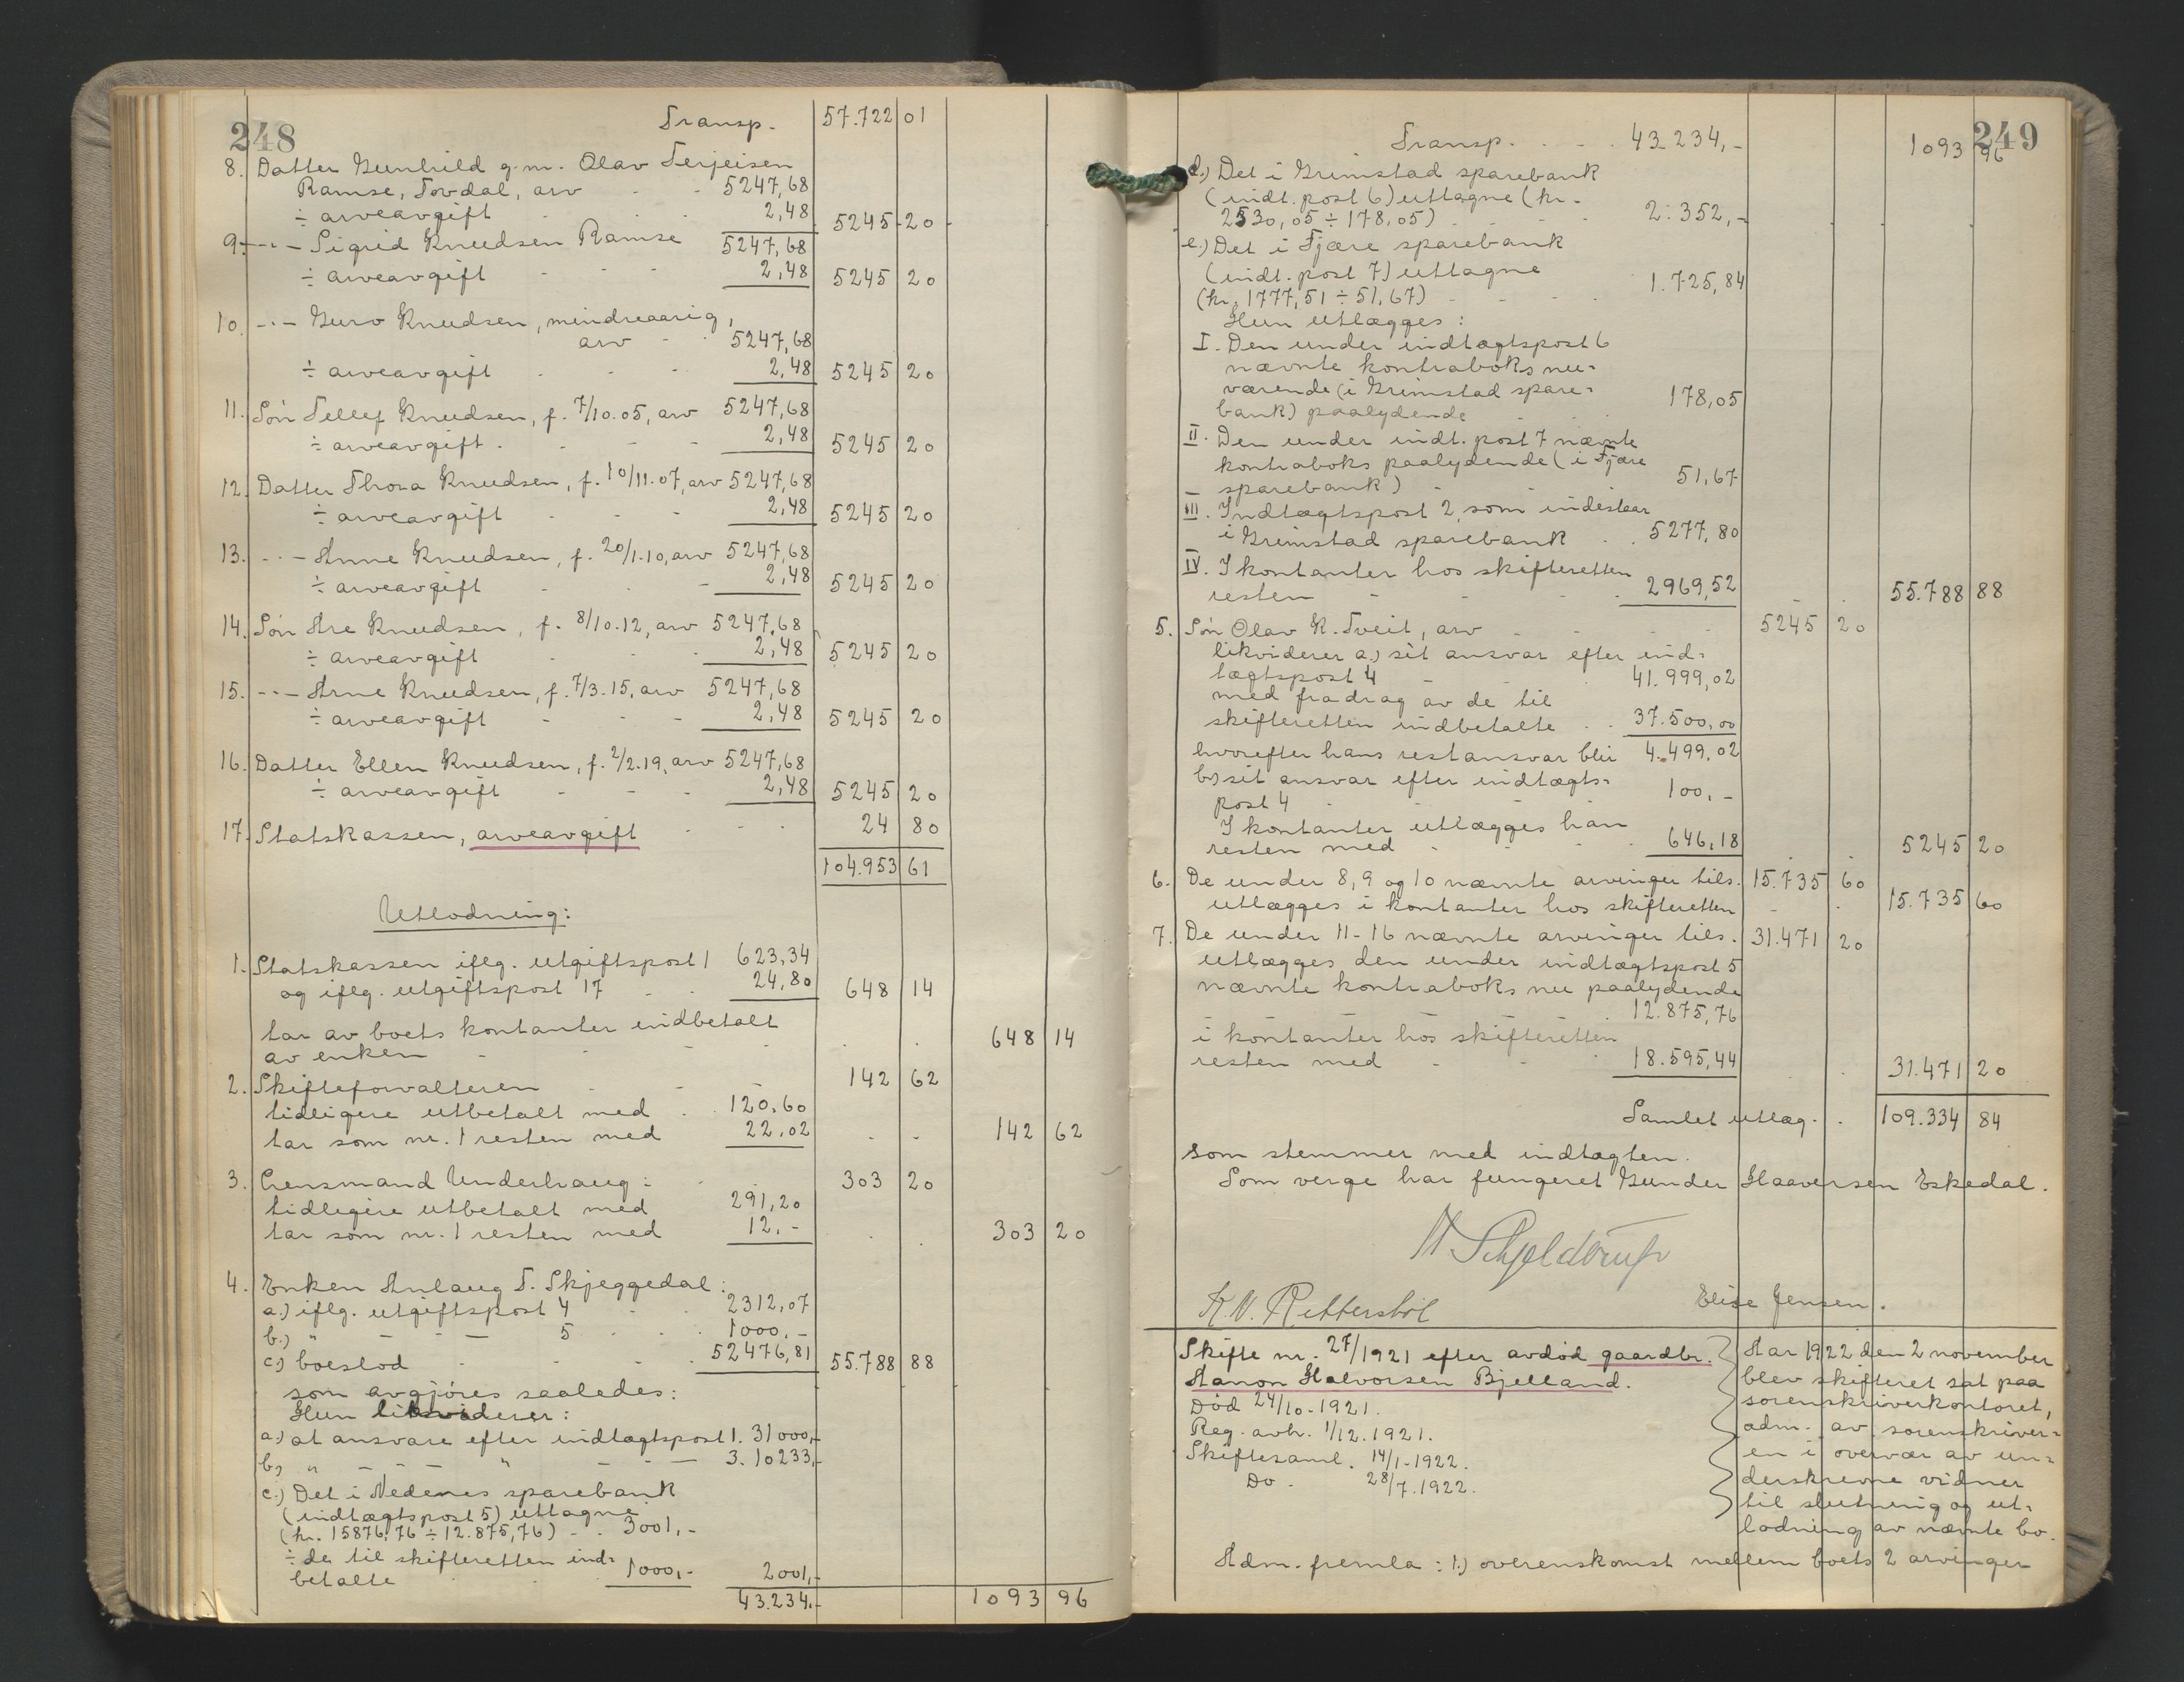 248
Transp. 57.722 01
8. Datter Gunhild g.m. Olav Terjeisen
Ramse, Tovdal, arv - - 5247,68
÷ arveavgift - - 2,48 5245 20
9. -"- Sigrid Knudsen Ramse 5247,68
÷ arveavgift - - - 2,48 5245 20
10. -"- Guro Knudsen, mindreaarig,
arv - - 5247,68
÷ arveavgift - - 2,48 5245 20
11. Søn Tellef Knudsen, f. 7/10.05, arv 5247,68
÷ arveavgift - - - 2,48 5245 20
12. Datter Thora Knudsen, f. 10/11.07, arv 5247,68
÷ arveavgift - - - 2,48 5245 20
13. -"- Anne Knudsen, f. 20/1.10, arv 5247,68
÷ arveavgift - - 2,48 5245 20
14. Søn Are Knudsen, f. 8/10.12, arv 5247,68
÷ arveavgift - - - 2,48 5245 20
15. -"- Arne Knudsen, f. 7/3.15, arv 5247,68
÷ arveavgift - - - 2,48 5245 20
16. Datter Ellen Knudsen, f. 2/2.19, arv 5247,68
÷ arveavgift - - - 2,48 5245 20
17. Statskassen, arveavgift - - - 24 80
104.953 61
Utlodning:
1. Statskassen iflg. utgiftspost 1 623,34
og iflg. utgiftspost 17 - - 24,80 648 14
tar av boets kontanter indbetalt
av enken - - - - 648 14
2. Skifteforvalteren - - - 142 62
tidligere utbetalt med - - 120,60
tar som nr. 1 resten med 22,02 - - 142 62
3. Lensmand Underhaug: - - 303 20
tidligere utbetalt med 291,20
tar som nr. 1 resten med 12,- 303 20
4. Enken Anlaug T. Skjeggedal:
a.) iflg. utgiftspost 4 - - 2312,07
b.) " - - - 5 - - 1000,-
c) boeslod - - - 52476,81 55.788 88
som avgjøres saaledes:
Hun likviderer:
a.) at ansvare efter indtægtspost 1. 31000,-
b) " - - - " - - - 3. 10233,-
c.) Det i Nedenes sparebank
(indtægtspost 5) uttagne
(kr. 15876,76 ÷ 12.875,76) - - 3001,-
÷ de til skifteretten ind=
betalte - - 1000,- 2001,-
43.234,- 1093 96
249
Transp. - - - 43.234,- 1093 96
d.) Det i Grimstad sparebank
(indt. post 6) uttagne (kr.
2530,05 ÷ 178,05) - - - 2.352,-
e.) Det i Fjære sparebank
(indt. post 7) uttagne
(kr. 1777,51 ÷ 51,67) - - - 1.725,84
Hun utlægges:
I. Den under indtægtspost 6
nævnte kontraboks nu=
værende (i Grimstad spare=
bank) paalydende - - 178,05
II. Den under indt. post 7 nævnte
kontraboks paalydende (i Fjære
sparebank) - - - 51,67
III. Indtægtspost 2, som indestaar
i Grimstad sparebank - - 5277,80
IV. I kontanter hos skifteretten
resten - - - - 2969,52 - - 55.788 88
5. Søn Olav K. Tveit, arv - - - 5245 20
likviderer a.) sit ansvar efter ind=
tægtspost 4 - - - 41.999,02
med fradrag av de til
skifteretten indbetalte - - 37.500,00
hvorefter hans restansvar blir 4.499,02
b.) sit ansvar efter indtægts=
post 4 - - - - 100,-
I kontanter utlægges han
resten med - - - 646,18 - - 5245 20
6. De under 8, 9 og 10 nævnte arvinger tils. 15.735 60
utlægges i kontanter hos skifteretten - - 15.735 60
7. De under 11-16 nævnte arvinger tils. 31.471 20
utlægges den under indtægtspost 5
nævnte kontraboks nu paalydende
12.875,76
i kontanter hos skifteretten
resten med - - - 18.595,44 - - 31.471 20
Samlet utlæg - - 109.334 84
som stemmer med indtægten.
Som verge har fungeret Gunder Haaversen Eskedal.
Schjelderup
K. V. Rettersböl Elise Jensen.
Skifte nr. 27/1921 efter avdød gaardbr.
Aanon Halvorsen Bjelland.
Død 24/10-1921.
Reg. avh. 1/12.1921.
Skiftesaml. 14/1-1922.
Do. 28/7.1922.
Aar 1922 den 2 november
blev skifteret sat paa
sorenskriverkontoret,
adm. av sorenskriver=
en i overvær av un=
derskrevne vidner
til slutning og ut=
lodning av nævnte bo.
Adm. fremla: 1.) overenskomst mellem boets 2 arvinger